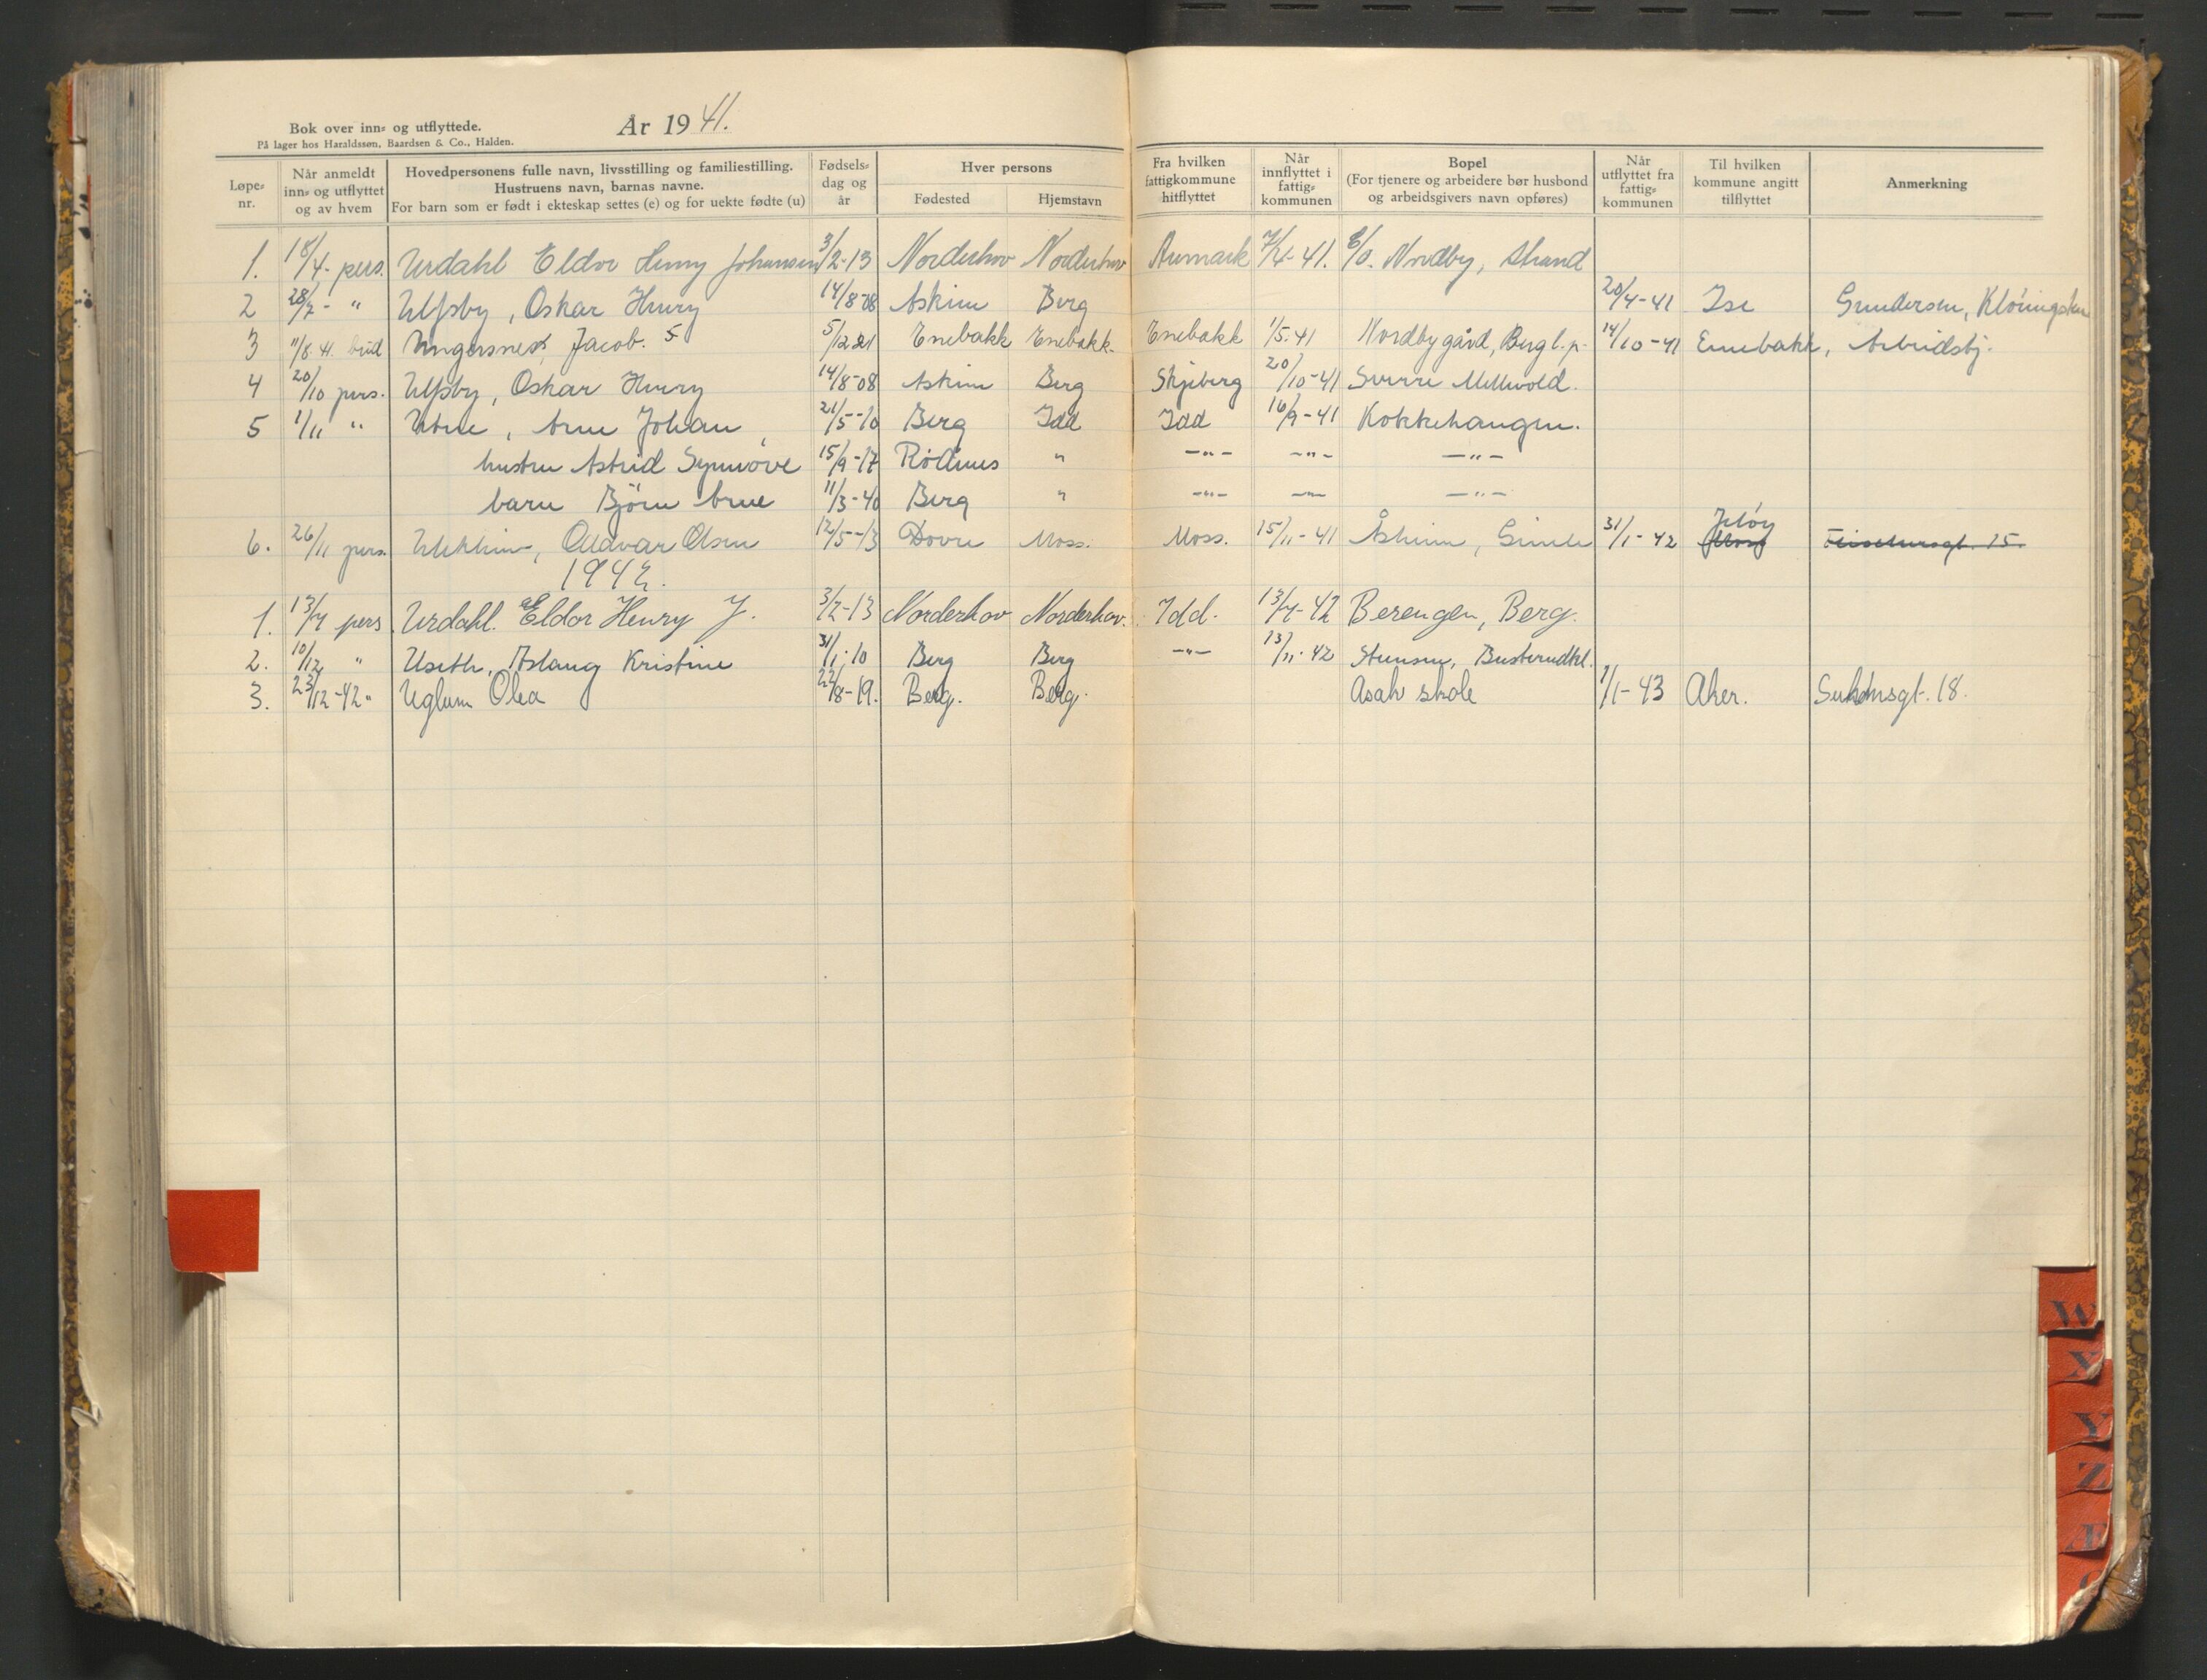 Bok over inn= og utflyttede.
På lager hos Haraldssøn, Baardsen & Co., Halden.
År 1941.
Løpe=nr.
Når anmeldt inn= og utflyttet og av hvem
Hovedpersonens fulle navn, livsstilling og familiestilling. Hustruens navn, barnas navne. For barn som er født i ekteskap settes (e) og for uekte fødte (u)
Fødsels=dag og år
Hver persons
Fødested
Hjemstavn
Fra hvilken fattigkommune hitflyttet
Når innflyttet i fattig=kommunen
Bopel (For tjenere og arbeidere bør husbond og arbeidsgivers navn opføres)
Når utflyttet fra fattig=kommunen
Til hvilken kommune angitt tilflyttet
Anmerkning
1. 18/4- pers. Urdahl Eldor Henry Johansen 3/2-13 Norderhov Norderhov Aremark 7/4-41. c/o. Nordby, Strand
2 28/7- " Ulfsby, Oskar Henry 14/8-08 Askim Berg 20/4-41 Ise Gundersen,
3 11/8 41. bud Ungersnes, Jacob. 5 5/12 21 Enebakk Enebakk. Enebakk 1/5.41 Nordby gård, Berg l.p. 14/10-41 Ennebakk, Arbeidstj.
4 20/10 pers. Ulfsby, Oskar Henry 14/8-08 Askim Berg Skjeberg 20/10-41 Sverre Mellevold.
5 1/11 " Utne, Arne Johan, 21/5-10 Berg Idd Idd 16/9-41 Kokkehaugen.
hustru Astrid Synnøve 15/9-17 Rødnes " -"- -"- -"-
barn Bjørn Arne 11/3-40 Berg " -"- -"- -"-
6. 26/11 pers. Oddvar Olsen 12/5-13 Dovre Moss. Moss. 15/11-41 Åsheim, Gimle 31/1-42 Jeløy Moss 15.
1942.
1. 13/4 pers. Urdahl. Eldor Henry J. 3/2-13 Norderhov Norderhov. Idd. 13/4-42 Berengen, Berg.
2. 10/12 " Useth, Aslaug Kristine 31/1.10 Berg Berg -"- 13/11.42 Stensen, Busterudkl.
3. 23/12-42 " Uglum Olea 22/8-19. Berg. Berg. Asak skole 1/1-43 Aker. 18.
W
X
Y
Z
Æ